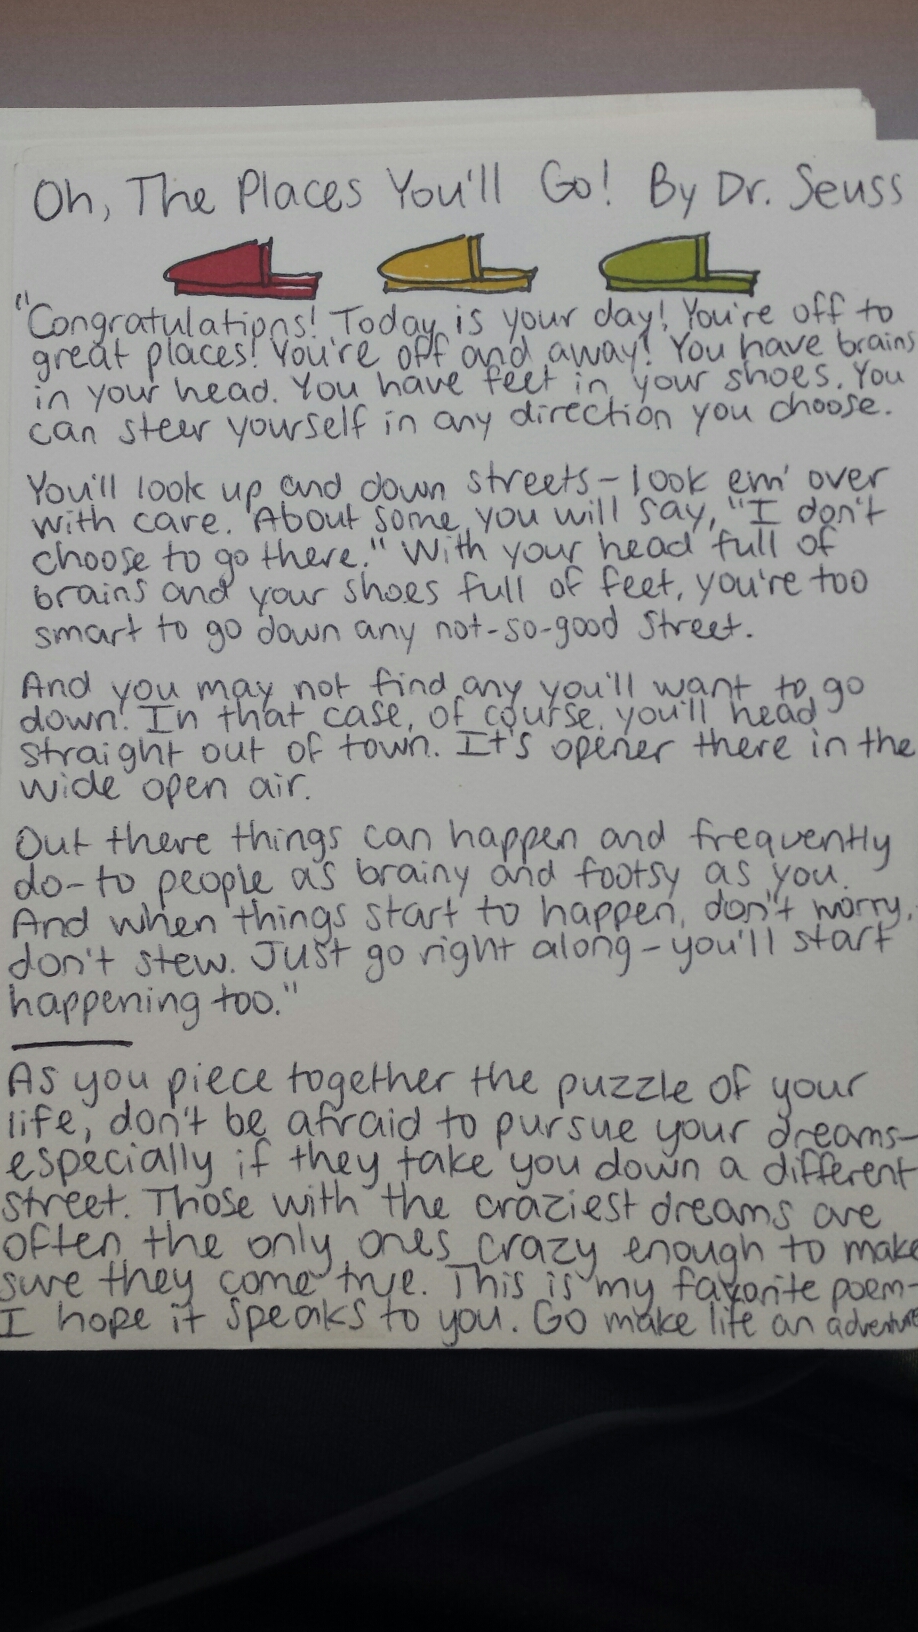 Oh, The Places You'll Go! By Dr. Seuss
"Congratulations! Today is your day! You're off to
great places! You're off and away! You have brains
in your head. You have feet in your shoes. You
can steer yourself in any direction you choose.
You'll look up and down streets-look em' over
with care. About some you will say, "I don't
choose to go there." With your head full of
brains and your shoes full of feet, you're too
smart to go down any not-so-good street.
And you may not find any you'll want to go
down. In that case, of course, you'll head
straight out of town. It's opener there in the
wide open air.
Out there things can happen and frequently
do-to people as brainy and footsy as you.
And when things start to happen, don't worry,
don't stew. Just go right along-you'll start
happening too."
As you piece together the puzzle of your
life, don't be afraid to pursue your dreams-
especially if they take you down a different
street. Those with the craziest dreams are
often the only ones crazy enough to make
sure they come true. This is my favorite poem-
I hope it speaks to you. Go make life an adventure